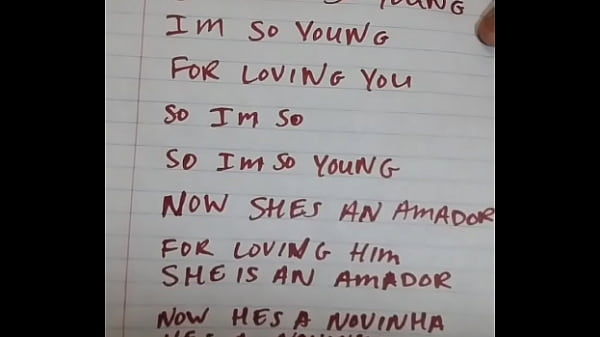 YOUNG
IM SO YOUNG
FOR LOVING YOU
SO IM SO
SO IM SO YOUNG
NOW SHES AN AMADOR
FOR LOVING HIM
SHE IS AN AMADOR
NOW HES A NOVINHA